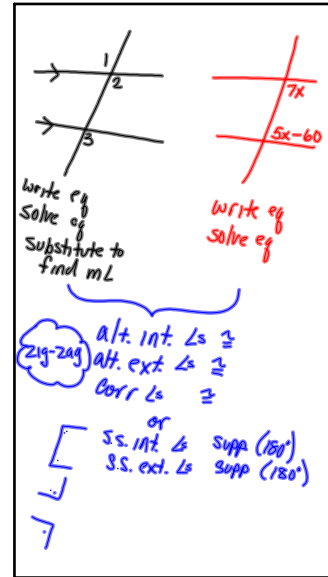 1
2
3
7x
5x-60
write eq
solve eq
substitute to
find m∠
write eq
solve eq
zig-zag
alt. int. ∠s ≅
alt. ext. ∠s ≅
corr ∠s ≅
or
s.s. int ∠s supp (180°)
s.s. ext. ∠s supp (180°)